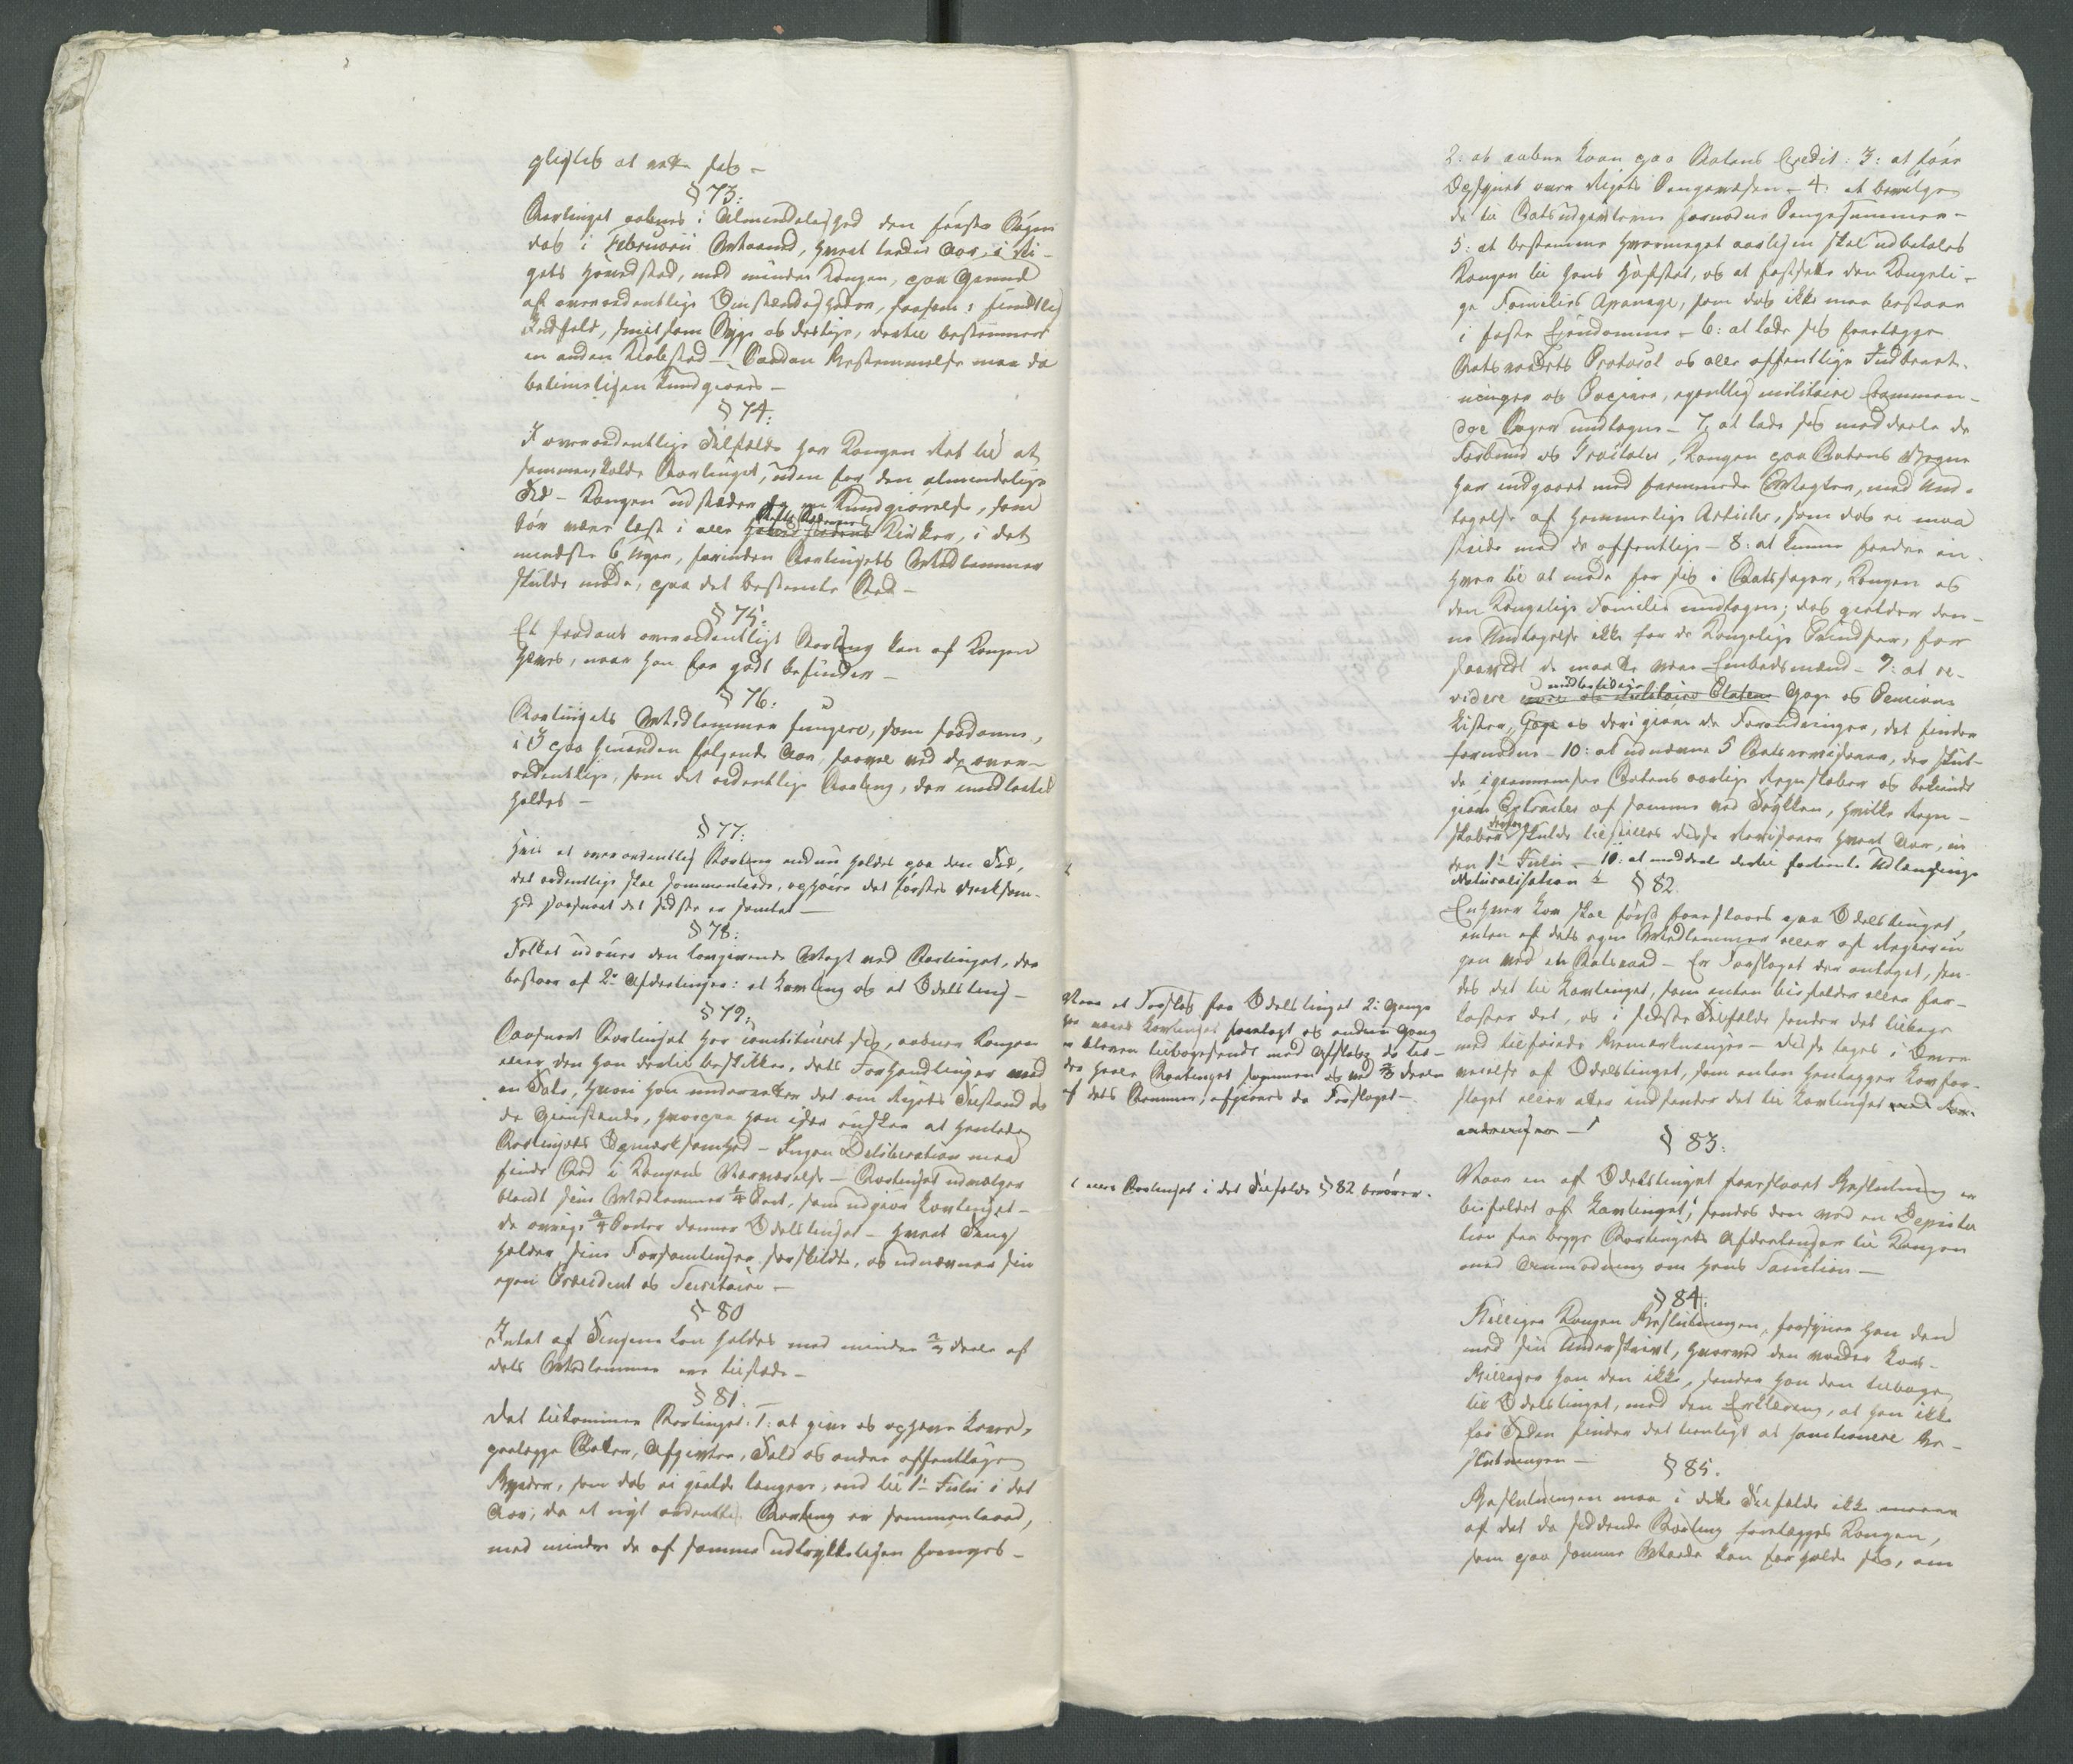 pligtes at rette sig –
§ 73:
Storting­et aabnes i Almindelighed den første Søgne
dag i Februarii Maaned, hvert tredie Aar, i Ri-
gets Hovedstad, med mindre Kongen, paa Grund
af overordentlige Omstændigheder, saasom: fiendtlig
Indfald, smitsom Syge og deslige, dertil bestemmer
en anden Kiøbstad – Saadan Bestemmelse maa da
betimeligen kundgiøres –
§ 74:
I overordentlige Tilfælde har Kongen Ret til at
sammenkalde Stortinget, uden for den almindelige
Tid – Kongen udstæder da en Kundgiørelse, som
bør være læst i alle Stifts Stædernes Kirker, i det
mindste 6 Uger, forinden Stortingets Medlemmer
skulde møde, paa det bestemte Sted –
§ 75:
Et saadant overordentligt Storting kan af Kongen
hæves, naar han for godt befinder –
§ 76:
Stortingets Medlemmer fungere, som saadanne,
i 3 paa hinanden følgende Aar, saavel ved de over-
ordentlige, som det ordentlige Storting, der imidlertid
holdes –
§ 77:
Hvis et overordentlig Storting endnu holdes paa den Tid,
det ordentlige skal sammentræde, ophører det førstes Virksom-
hed saasnart det sidste er samlet –
§ 78:
Folket udøver den lovgivende Magt ved Stortinget, der
bestaar af 2de Afdelinger: et Lavting og et Odelsting –
§ 79:
Saasnart Stortinget har constitueret sig, aabner Kongen
eller den han dertil beskikker, dets Forhandlinger med
en Tale, hvori han underretter det om Rigets Tilstand og
de Gienstande, hvorpaa han især ønsker at henlede
Stortingets Opmærksomhed – Ingen Deliberation maa
finde Sted i Kongens Nærværelse – Stortinget udvælger
blandt sine Medlemmer ¼ Part, som udgiør Lavtinget –
de øvrige ¾ Parter danner Odelstinget – Hvert Ting
holder sine Forsamlinger særskildt, og udnævner sin
egen Præsident og Secretaire –
§ 80
Intet af Tingene kan holdes med mindre ⅔ Deele af
dets Medlemmer ere tilstæde –
§ 81:
Det tilkommer Stortinget: 1: at give og ophæve Love,
paalægge Skatter, Afgivter, Told og andre offentlige
Byrder, som dog ei gielde længere, end til 1ste Julii i det
Aar, da et nyt ordentlig Storting er sammentraad,
med mindre de af samme udtrykkeligen fornyes –
2: at aabne Laan paa Statens Credit: 3: at føre
Opsynet over Rigets Pengevæsen – 4: at bevilge
de til Statsudgivterne fornødne Pengesummer –
5: at bestemme hvormeget aarligen skal udbetales
Kongen til hans Hofstat, og at fastsætte den Kongeli-
ge Families Apanage, som dog ikke maa bestaae
i faste Eiendomme – 6: at lade sig forelægge
Statsraadets Protocol og alle offentlige Indberet-
ninger og Papirer, egentlig militaire Comman-
doe Sager undtagne – 7, at lade sig meddeele de
Forbund og Tractater, Kongen paa Statens Vegne
har indgaaet med fremmede Magter, med Und-
tagelse af hemmelige Articler, som dog ei maa
stride mod de offentlige – 8: at kunne fordre en-
hver til at møde for sig i Statssager, Kongen og
den Kongelige Familie undtagen; dog gielder den-
ne Undtagelse ikke for de Kongelige Prindser, for
saavidt de maatte være Embedsmænd – 9: at re-
videre midlertidige civil og militaire Etaters Gage og Pensions
Lister, Gage og deri giøre de Forandringer, det finder
fornødne – 10: at udnævne 5 Statsrevisorer, der skul-
de igiennemsee Statens aarlige Regnskaber og bekiendt
giøre Extracter af samme ved Trykken, hvilke Regn-
skaber derfor skulde tilstilles disse Revisorer hvert Aar, in-
den 1ste Julii – 10: at meddeele dertil fortiente Udlændinge
Naturalisation – § 82.
Enhver Lov skal først foreslaaes paa Odelstinget,
enten af dets egne Medlemmer eller af Regierin
gen ved en Statsraad – Er Forslaget der antaget, sen-
des det til Lavtinget, som enten bifalder eller for-
kaster det, og i sidste Tilfælde sender det tilbage
med tilføiede Bemærkninger – Disse tages i Over-
veielse af Odelstinget, som enten henlægger Lovfor-
slaget eller atter indsender det til Lavtinget med For-
andringer –
§ 83:
Naar et Forslag fra Odelstinget 2de Gange
har været Lavtinget forelagt og anden Gang
er bleven tilbagesendt med Afslag, da træ-
der heele Stortinget sammen og med ⅔ Deele
af dets Stemmer, afgiøres da Forslaget –
Naar en af Odelstinget foreslaaet Beslutning er
bifaldet af Lavtinget, sendes den ved en Deputa
tion fra begge Stortingets Afdeelinger til Kongen
med Anmodning om hans Sanction –
eller Stortinget i det Tilfælde § 82 berører.
§ 84:
Billiger Kongen Beslutningen, forsyner han den
med sin Underskrivt, hvorved den vorder Lov –
Billiger han den ikke, sender han den tilbage
til Odelstinget, med den Erklæring, at han ikke
for Tiden finder det tienligt at sanctionere Be-
slutningen –
§ 85.
Beslutningen maa i dette Tilfælde ikke meere
af det da siddende Storting forelægges Kongen,
som paa samme Maade kan forholde sig, om